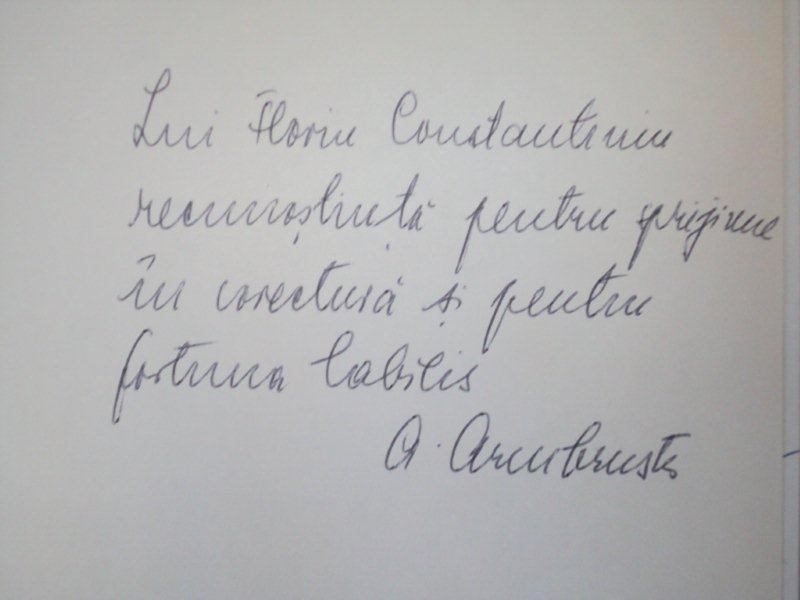 Lui Florin Constantiniu
recunoștință pentru sprijinul
în corectură și pentru
fortuna labilis
A. Armbruster